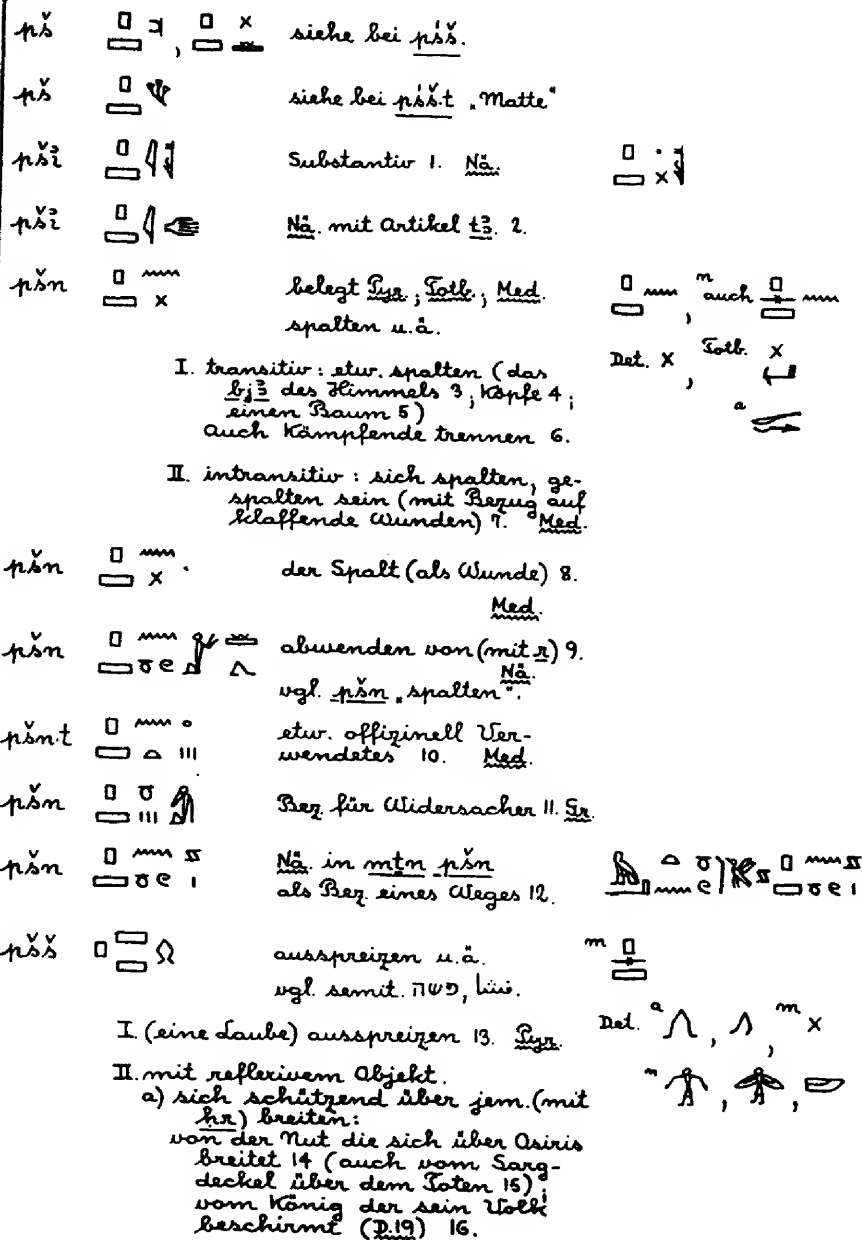 pš , siehe bei pśš.
pš siehe bei pśš.t „Matte"
pšꜣ Substantiv 1. Nä.
pšꜣ Nä. mit Artikel tꜣ. 2.
pšn belegt Pyr.; Totb.; Med. , n auch
spalten u.ä. Det. x , Totb. x
I. transitiv: etw. spalten (das
bjꜣ des Himmels 3; Köpfe 4;
einen Baum 5) a
auch Kämpfende trennen 6.
II. intransitiv: sich spalten, ge-
spalten sein (mit Bezug auf
klaffende Wunden) 7. Med.
pšn der Spalt (als Wunde) 8.
Med.
pšn abwenden von (mit r) 9.
Nä.
vgl. pšn „spalten".
pšn.t etw. offizinell Ver-
wendetes 10. Med.
pšn Bez. für Widersacher 11. Gr.
pšn Nä. in mtn pšn
als Bez. eines Weges 12.
pšš ausspreizen u.ä. m
vgl. semit. פשה, فشا.
I. (eine Laube) ausspreizen 13. Pyr. Det. a , , m x
II. mit reflexivem Objekt. n , ,
a) sich schützend über jem. (mit
ḥr) breiten:
von der Nut die sich über Osiris
breitet 14 (auch vom Sarg-
deckel über dem Toten 15);
vom König der sein Volk
beschirmt (D.19) 16.